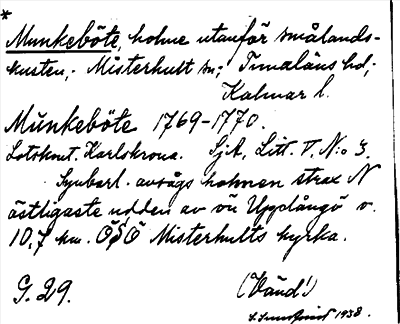 *
Munkeböte, holme utanför smålands-
kusten; Misterhult sn; Tunaläns hd;
Kalmar l.
Munkeböte 1769-1770.
Lotskont. Karlskrona. SjA, Litt. V, N:o 3.
Synbarl. avsågs holmen strax N
östligaste udden av ön Upplångö v.
10,7 km. ÖSÖ Misterhults kyrka.
G. 29. (Vänd!)
1938.